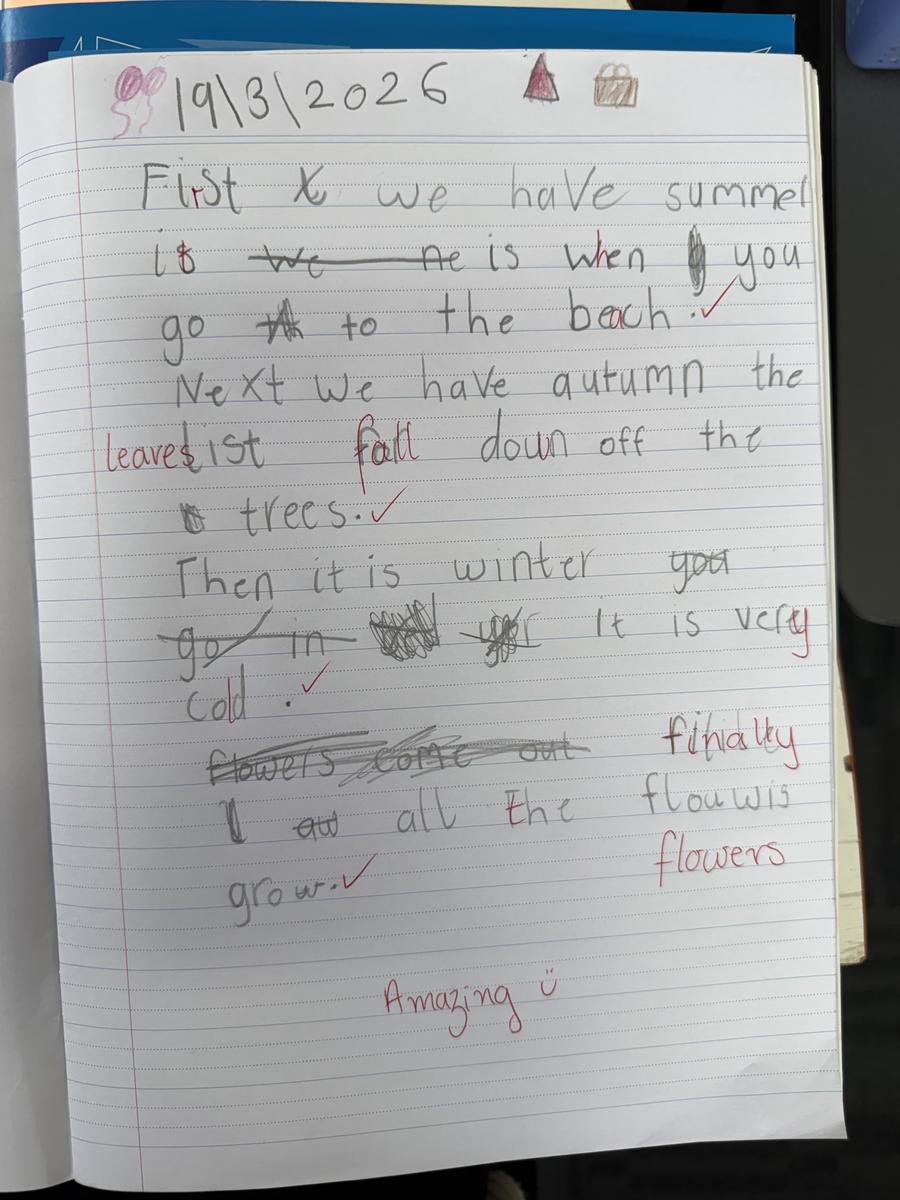 19\3\2026
First we have summer
it is when you
go to the beach.
Next we have autumn the
leaves list fall down off the
trees.
Then it is winter you
go in it is very
cold.
flowers come out finally
all the flouwis
flowers
grow.
Amazing